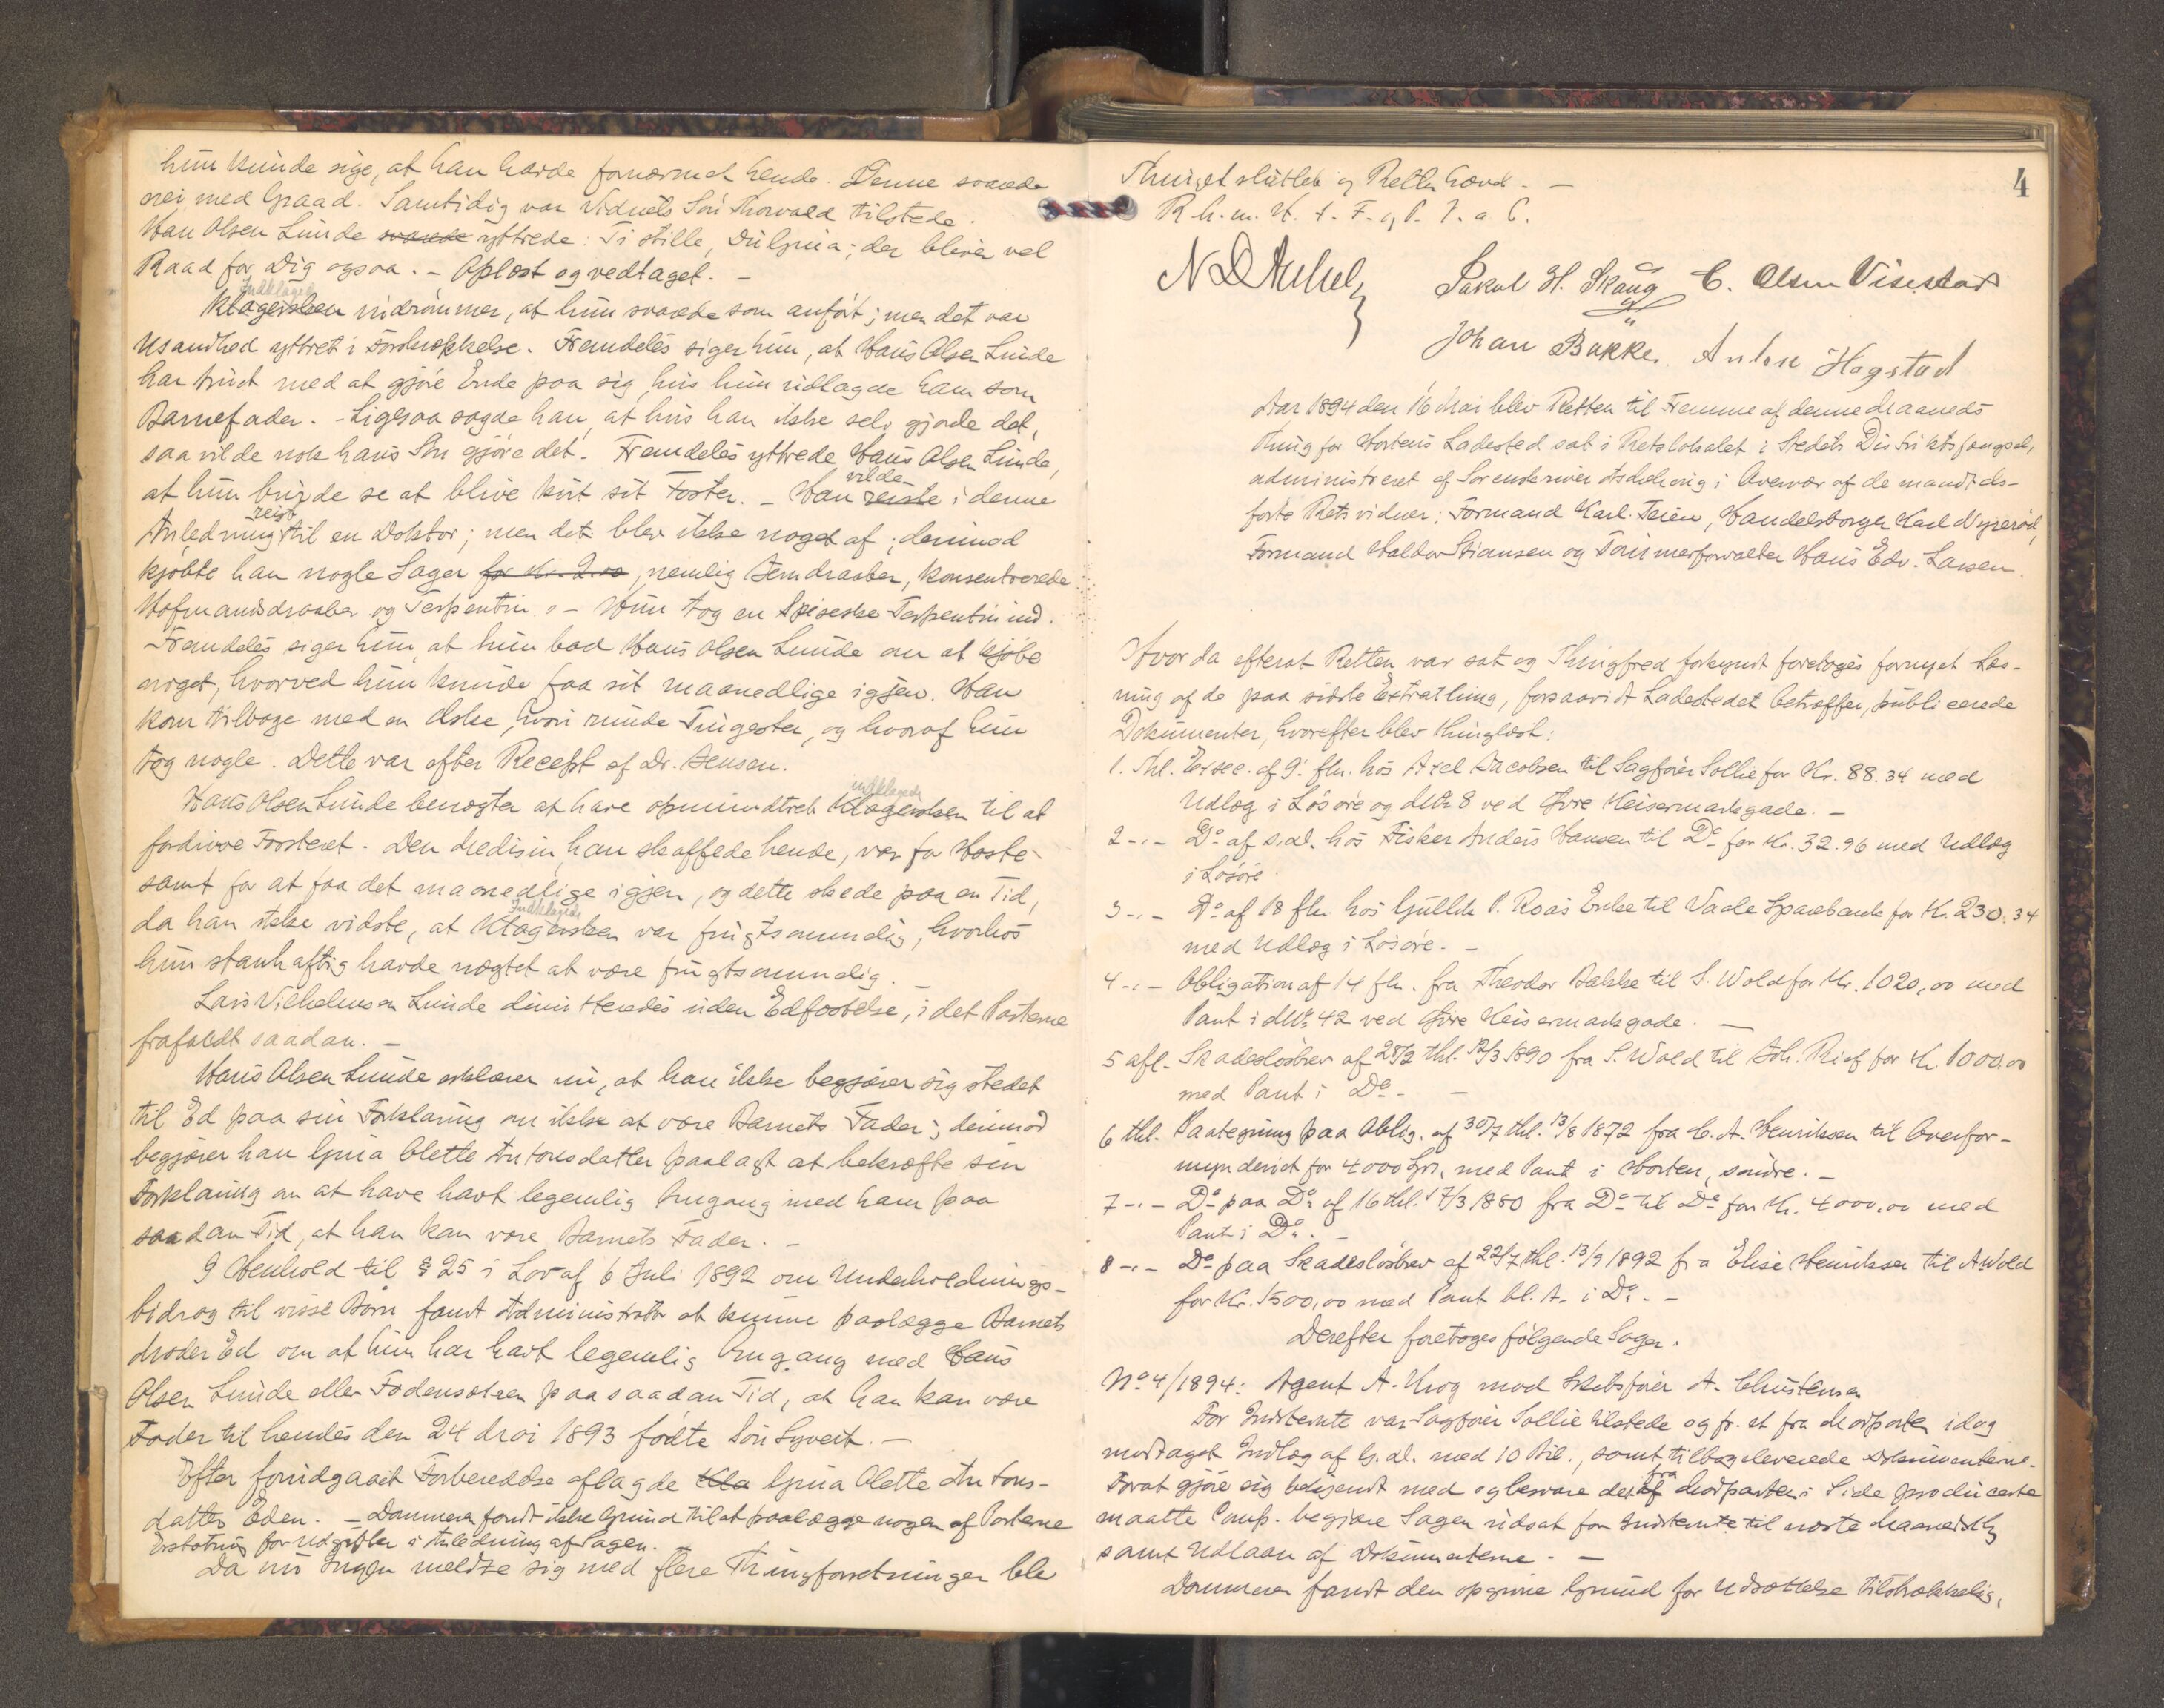 hun kunde sige, at han havde fornærmet hende. Denne svarede
nei med Graad. Samtidig var Vidnets Søn Thorvald tilstede.
Hans Olsen Lunde svarede yttrede: Ti stille, Du Gina; der bliver vel
Raad for Dig ogsaa. - Oplæst og vedtaget. -
Indklagede
Klagersken indrømmer, at hun svarede som anført; men det var
Usandhed yttret i Forskrækkelse. Fremdeles siger hun, at Hans Olsen Lunde
har truet med at gjøre Ende paa sig, hvis hun udlagde ham som
Barnefader. - Ligesaa sagde han, at hvis han ikke selv gjorde det,
saa vilde nok hans Søn gjøre det. Fremdeles yttrede Hans Olsen Lunde,
vilde
at hun burde se at blive kvit sit Foster. - Han reiste i denne
reist
Anledning til en Doktor; men det blev ikke noget af; derimod
kjøbte han nogle Sager for Kr. 2.00, nemlig Jerndraaber, konsentrerede
Hofmandsdraaber og Terpentin. - Hun tog en Spiseske Terpentin ind.
- Fremdeles siger hun, at hun bad Hans Olsen Lunde om at kjøbe
noget, hvorved hun kunde faa sit maanedlige igjen. Han
kom tilbage med en Æske, hvori runde Tingester, og hvoraf hun
tog nogle. Dette var efter Recept af Dr. Jensen.
indklagede
Hans Olsen Lunde benægter at have opmuntret Klagersken til at
fordrive Fosteret. Den Medisin, han skaffede hende, var for Hoste
samt for at faa det maanedlige igjen, og dette skede paa en Tid,
Indklagede
da han ikke vidste, at Klagersken var frugtsommelig, hvorhos
hun stanhaftig havde nægtet at være frugtsommelig. -
Lars Vilhelmsen Lunde dimitteredes uden Edfæstelse, idet Parterne
frafaldt saadan. -
Hans Olsen Lunde erklærer nu, at han ikke begjærer sig stedet
til Ed paa sin Forklaring om ikke at være Barnets Fader; derimod
begjærer han Gina Olette Antonsdatter paalagt at bekræfte sin
Forklaring om at have havt legemlig Omgang med ham paa
saadan Tid, at han kan være Barnets Fader. -
I Henhold til § 25 i Lov af 6 Juli 1892 om Underholdnings-
bidrag til visse Børn fandt Administrator at kunne paalægge Barnets
Moder Ed om at hun har havt legemlig Omgang med Hans
Olsen Lunde eller Fødenselsen paa saadan Tid, at han kan være
Fader til hendes den 24 Mai 1893 fødte Søn Syvert. -
Efter forudgaaet Forberedelse aflagde Kla Gina Olette Antons-
datter Eden. - Dommeren fandt ikke Grund til at paalægge nogen af Parterne
Erstatning for Udgifter i Anledning af Sagen.
Da nu Ingen meldte sig med flere Thingforretninger blev
4
Thinget sluttet og Retten hævet. -
R. h. m. K. 1. F. og P. 7. a. C.
Jakob H. Skaug C. Olsen Visestad
Johan Bakke. Anton Hagstad
Aar 1894 den 16 Mai blev Retten til Fremme af denne Maaneds
Thing for Hortens Ladested sat i Retslokalet i Stedets Distriktsfængsel,
administreret af Sorenskriver i Overvær af de mandtals-
førte Retsvidner: Formand Karl Teien, Handelsborger Karl Nyrerød,
Formand Halvor Stiansen og Tømmerforvalter Hans Edv. Larsen.
Hvorda efterat Retten var sat og Thingfred forkyndt foretoges fornyet Læs-
ning af de paa sidste Extrathing, forsaavidt Ladestedet betræffer, publicerede
Dokumenter, hvorefter blev thinglæst:
1. Thl. Exsec. af 9. fm. hos Axel Jacobsen til Sagfører Sollie for Kr. 88.34 med
Udlæg i Løsøre og M.Nr. 8 ved Øvre Keisermarksgade. -
2 -.- Do af s.d. hos Fisker Anders Hansen til Do for Kr. 32.96 med Udlæg
i Løsøre.
3 -.- Do af 18 fm. hos Gullik P. Roas Enke til Vaale Sparebank for Kr. 230.34
med Udlæg i Løsøre. -
4 -.- Obligation af 14 fm. fra Theodor Bakke til S. Wold for Kr. 1020,00 med
Pant i M.Nr. 42 ved Øvre Keisermarksgade. -
5 afl. Skadesløsbrev af 28/2 thl. 12/3 1890 fra S. Wold til Joh. Rief for Kr. 1000,00
med Pant i Do. -
6 thl. Paategning paa Oblig. af 30/7 thl. 13/8 1872 fra C. A. Henriksen til Overfor-
mynderiet for 4000 Kr. med Pant i Horten, søndre. -
7 -.- Do paa Do af 16 thl. 17/3 1880 fra Do til Do for Kr. 4000,00 med
Pant i Do. -
8 -.- Do paa Skadesløsbrev af 22/7 thl. 13/9 1892 fra Elise Henriksen til A. Wold
for Kr. 1500,00 med Pant bl. A. i Do. -
Derefter foretoges følgende Sager.
No 4/1894: Agent A. Krog mod Skibsfører A. Christensen
For Indstevnte var Sagfører Sollie tilstede og fr. et fra Modparten idag
modtaget Indlæg af G. D. med 10 Bil., samt tilbageleverede Dokumenterne.
fra
Forat gjøre sig bekjendt med og besvare det af Modpartens Side producerte
maatte Comp. begjære Sagen udsat for Indstevnte til næste Maanedsthg
samt Udlaan af Dokumenterne. -
Dommeren fandt den opgivne Grund for Udsættelse tilstrækkelig,